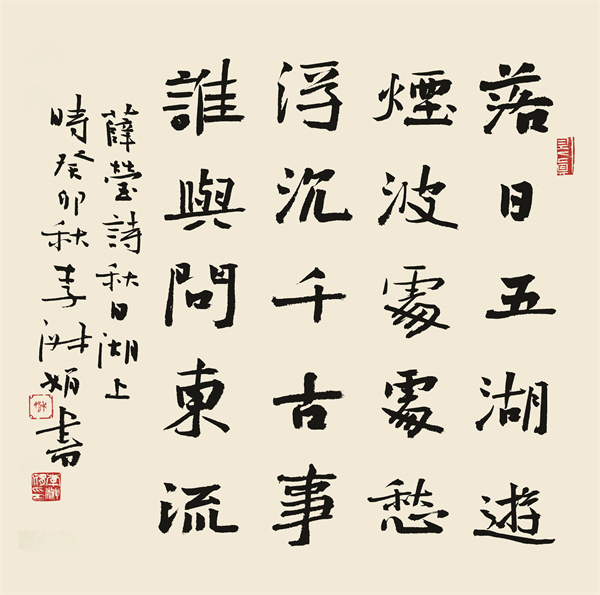 落日五湖遊
煙波處處愁
浮沉千古事
誰與問東流
薛瑩詩秋日湖上
時癸卯秋李淑娟書